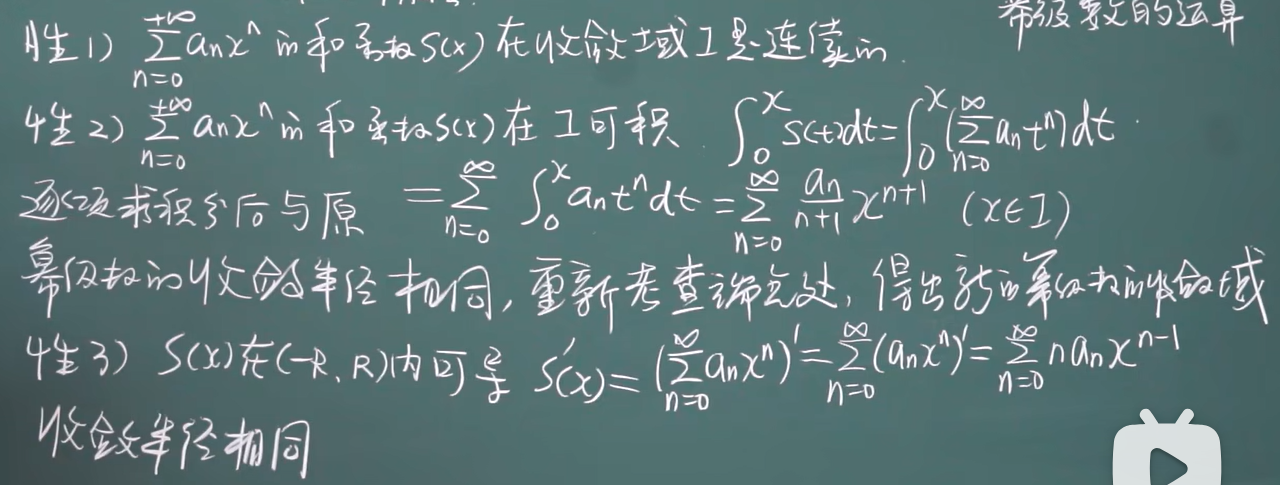 幂级数的运算
性1) \sum_{n=0}^{+\infty} a_n x^n 的和函数S(x)在收敛域I是连续的.
性2) \sum_{n=0}^{+\infty} a_n x^n 的和函数S(x)在I可积. \int_0^x S(t)dt = \int_0^x (\sum_{n=0}^{\infty} a_n t^n)dt.
逐项求积分后与原 = \sum_{n=0}^{\infty} \int_0^x a_n t^n dt = \sum_{n=0}^{\infty} \frac{a_n}{n+1} x^{n+1} (x∈I)
幂级数的收敛半径相同,重新考查端点处,得出新的幂级数的收敛域
性3) S(x)在(-R,R)内可导 S'(x) = (\sum_{n=0}^{\infty} a_n x^n)' = \sum_{n=0}^{\infty} (a_n x^n)' = \sum_{n=0}^{\infty} n a_n x^{n-1}
收敛半径相同